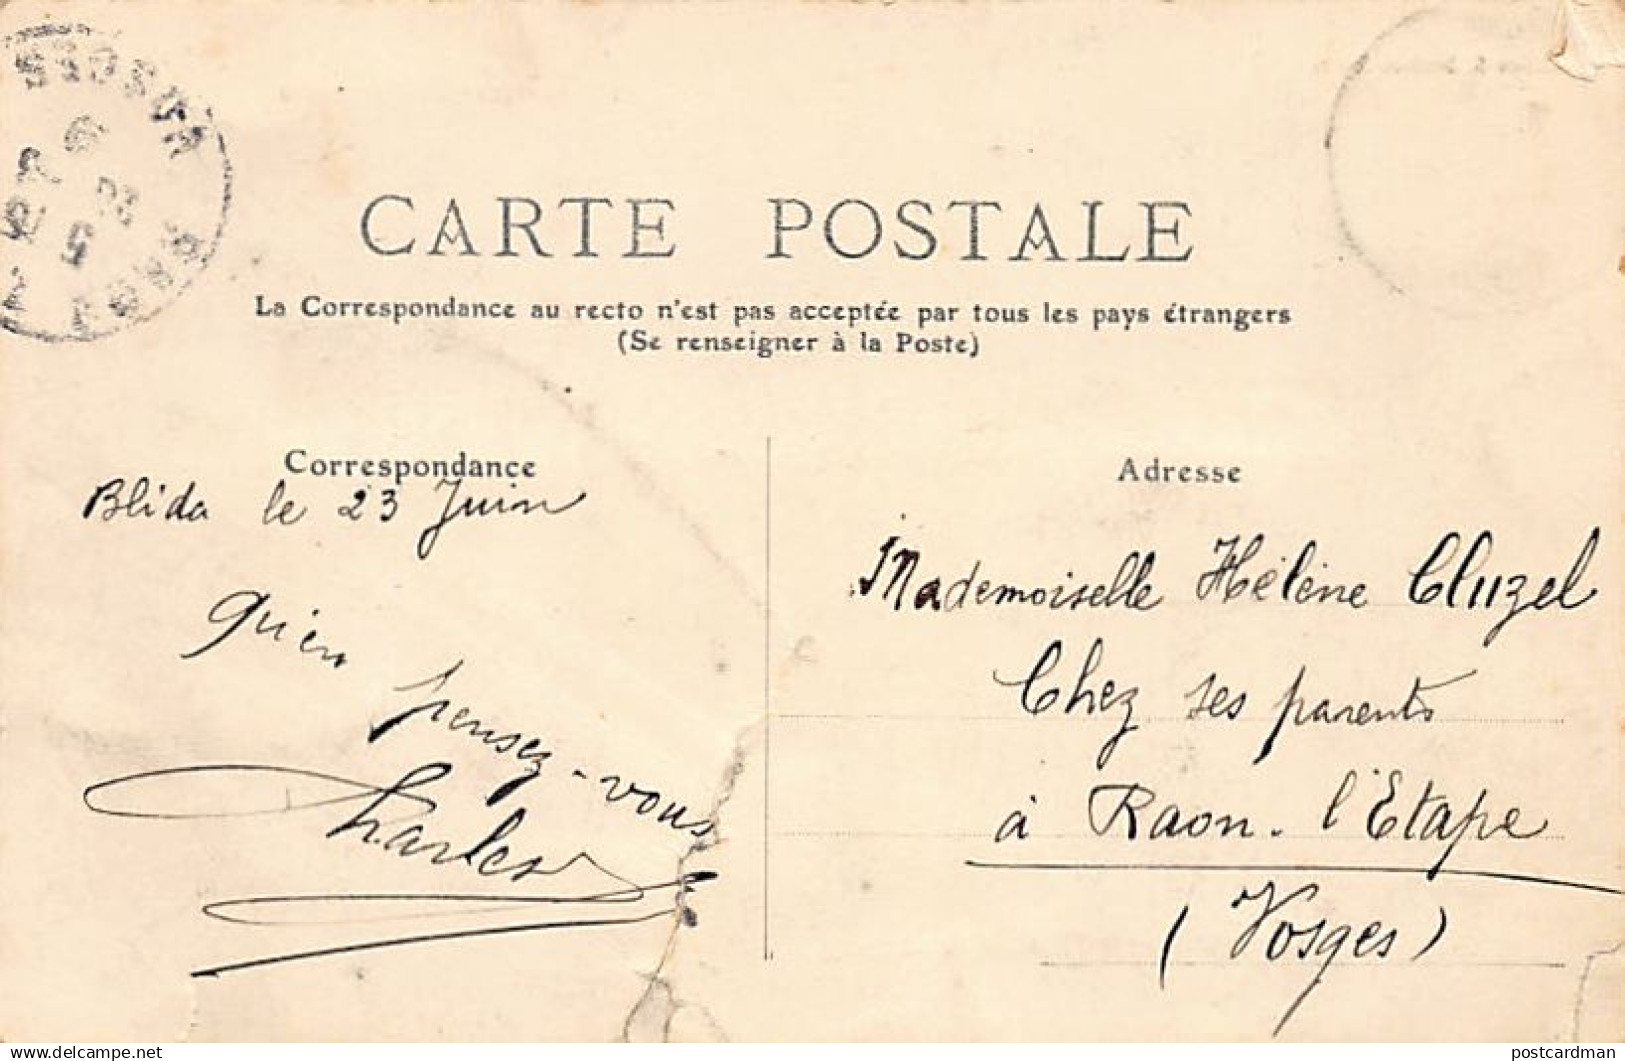 CARTE POSTALE
La Correspondance au recto n'est pas acceptée par tous les pays étrangers
(Se renseigner à la Poste)
Correspondance
Blida le 23 Juin
qu'en
pensez-vous
Charles
Adresse
Mademoiselle Hélène Cluzel
Chez ses parents
à Raon-l'Etape
(Vosges)
VOSGES
https://www.delcampe.net
postcardman